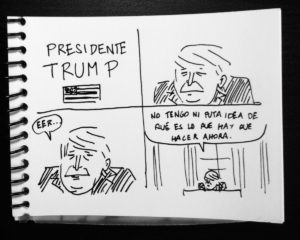 PRESIDENTE
TRUMP
EER...
NO TENGO NI PUTA IDEA DE
QUÉ ES LO QUE HAY QUE
HACER AHORA.